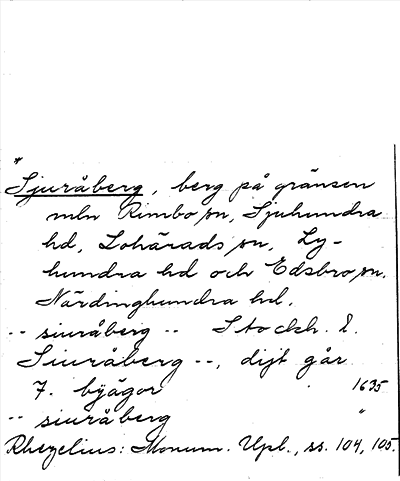 *
Sjuråberg, berg på gränsen
mln Rimbo sn, Sjuhundra
hd, Lohärads sn, Ly-
hundra hd och Edsbro sn.
Närdinghundra hd.
-- siuråberg -- Stockh. l.
Siuråberg --, dijt går
7. byägor 1635
-- siuråberg "
Rhezelius: Monum. Upl., ss. 104, 105.